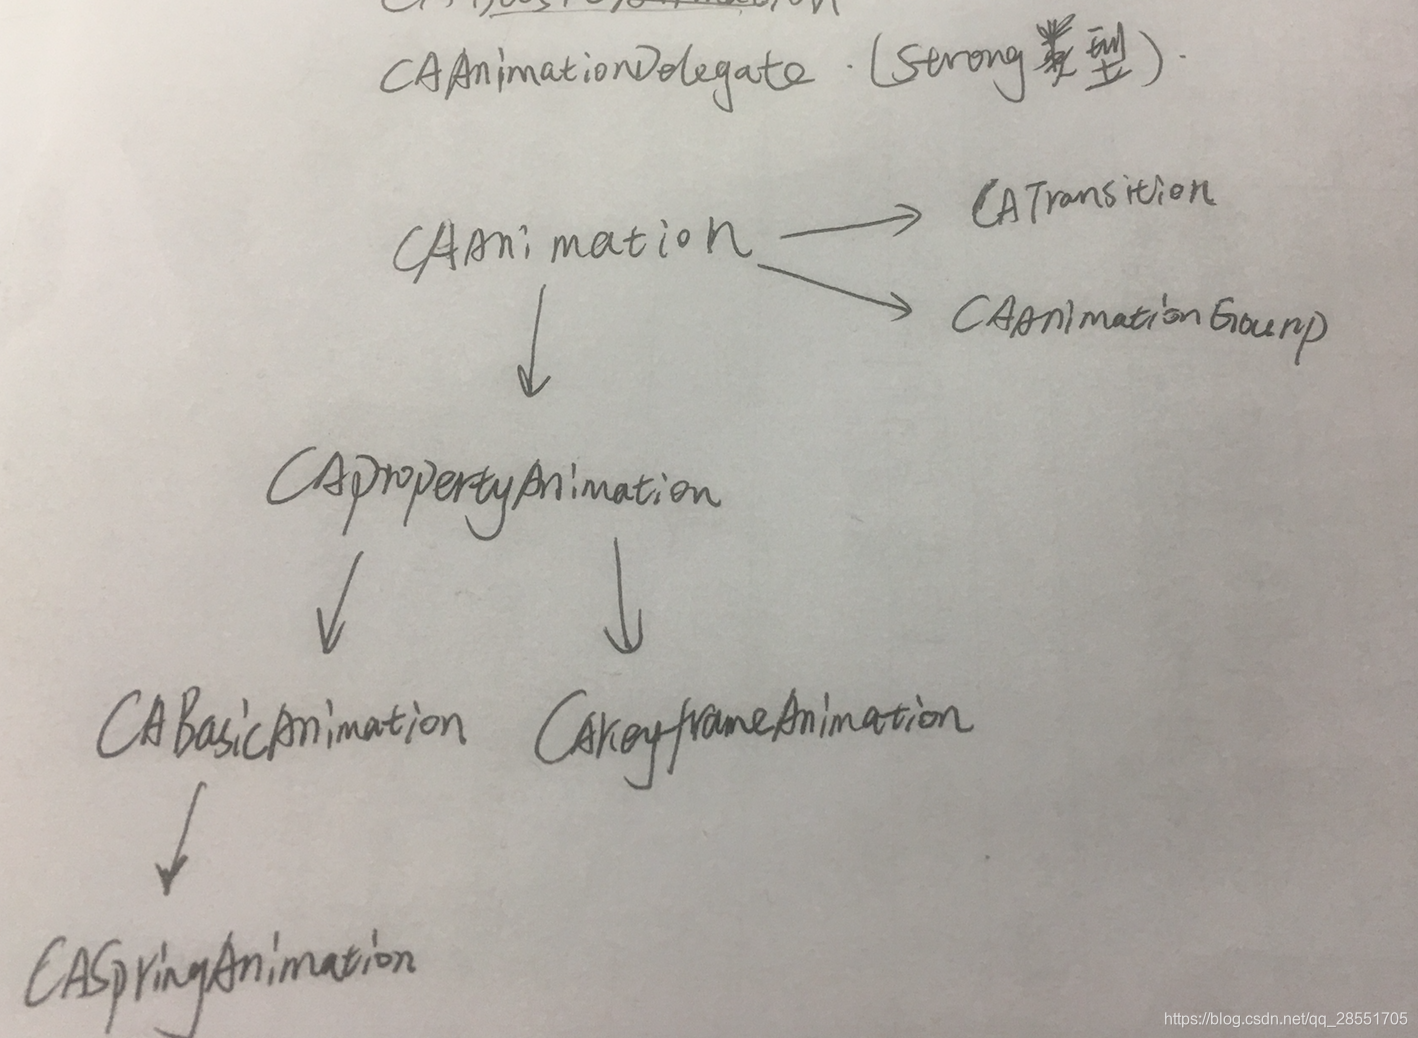 CAAnimationDelegate . (strong类型).
CATransition
CAAnimation
CAAnimationGounp
CApropertyAnimation
CABasicAnimation CAkeyframeAnimation
CASpringAnimation
https://blog.csdn.net/qq_28551705